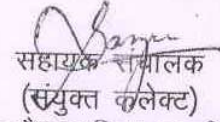 सहायक संचालक
(संयुक्त कलेक्ट)